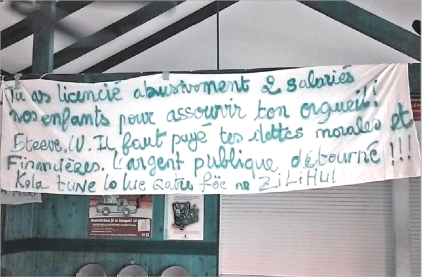 Tu as licencié abusivement 2 salariés
nos enfants pour assouvir ton orgueil!
Steeve. W. Il faut payé tes dettes morales et
Financières. L'argent publique détourné !!!
Kola tune lo hue qatre föe ne ZiLiHu!